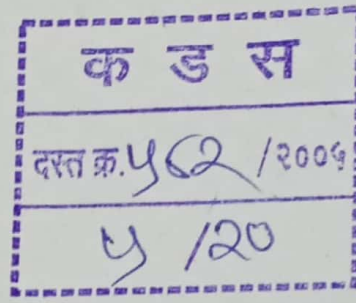 क ड स
दस्त क्र.५८२ /२००५
५ /२०